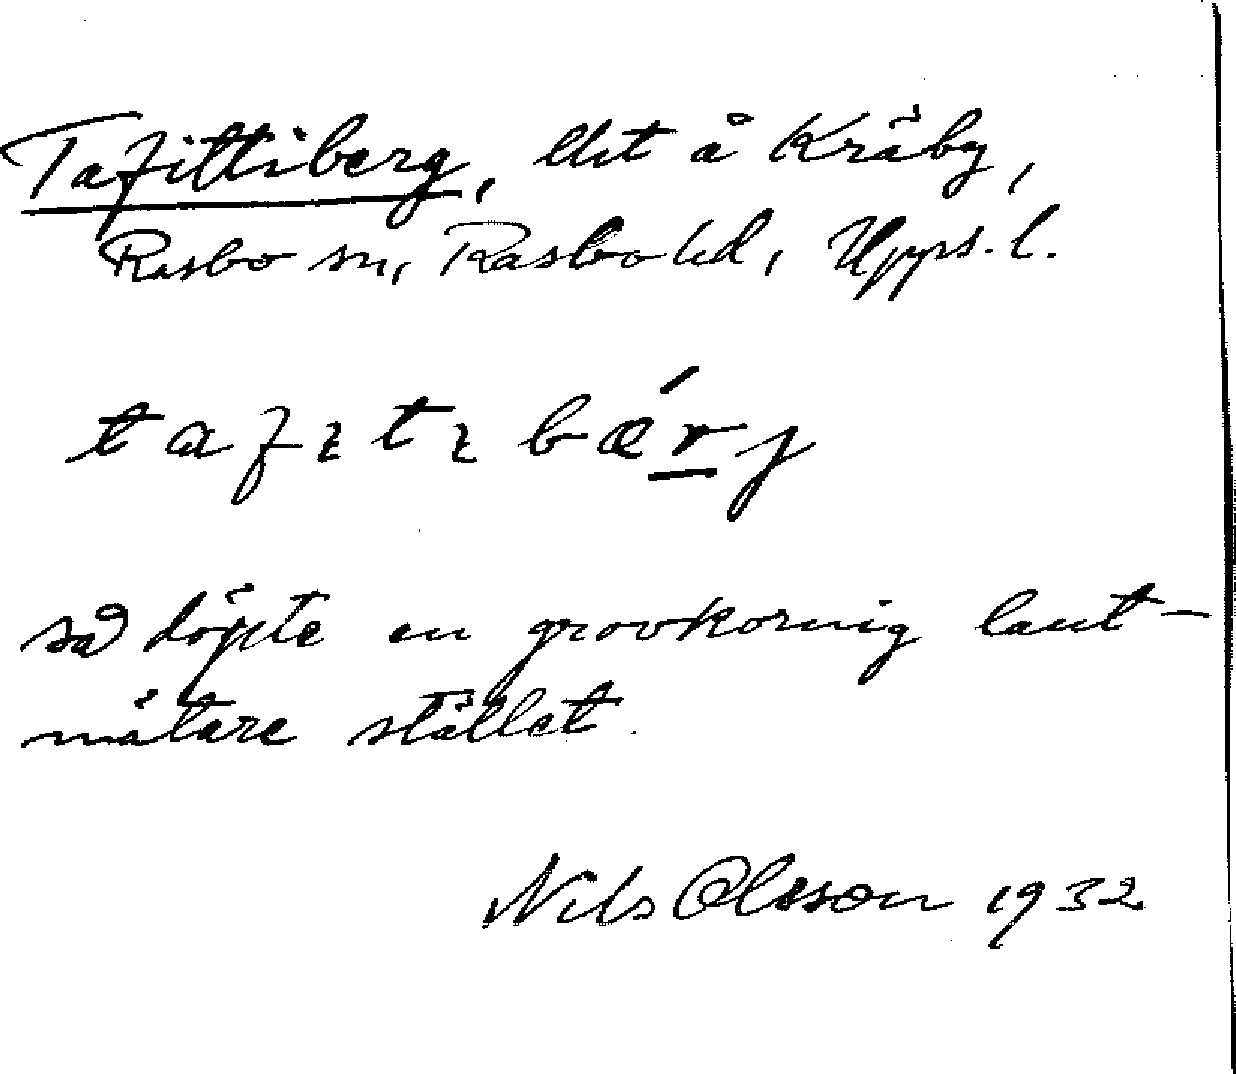 Tafittiberg, llit å Kråby,
Rasbo sn, Rasbo hd, Upps. l.
tafɩtɩbærj
så döpte en grovkornig lant-
mätare stället.
Nils Olsson 1932